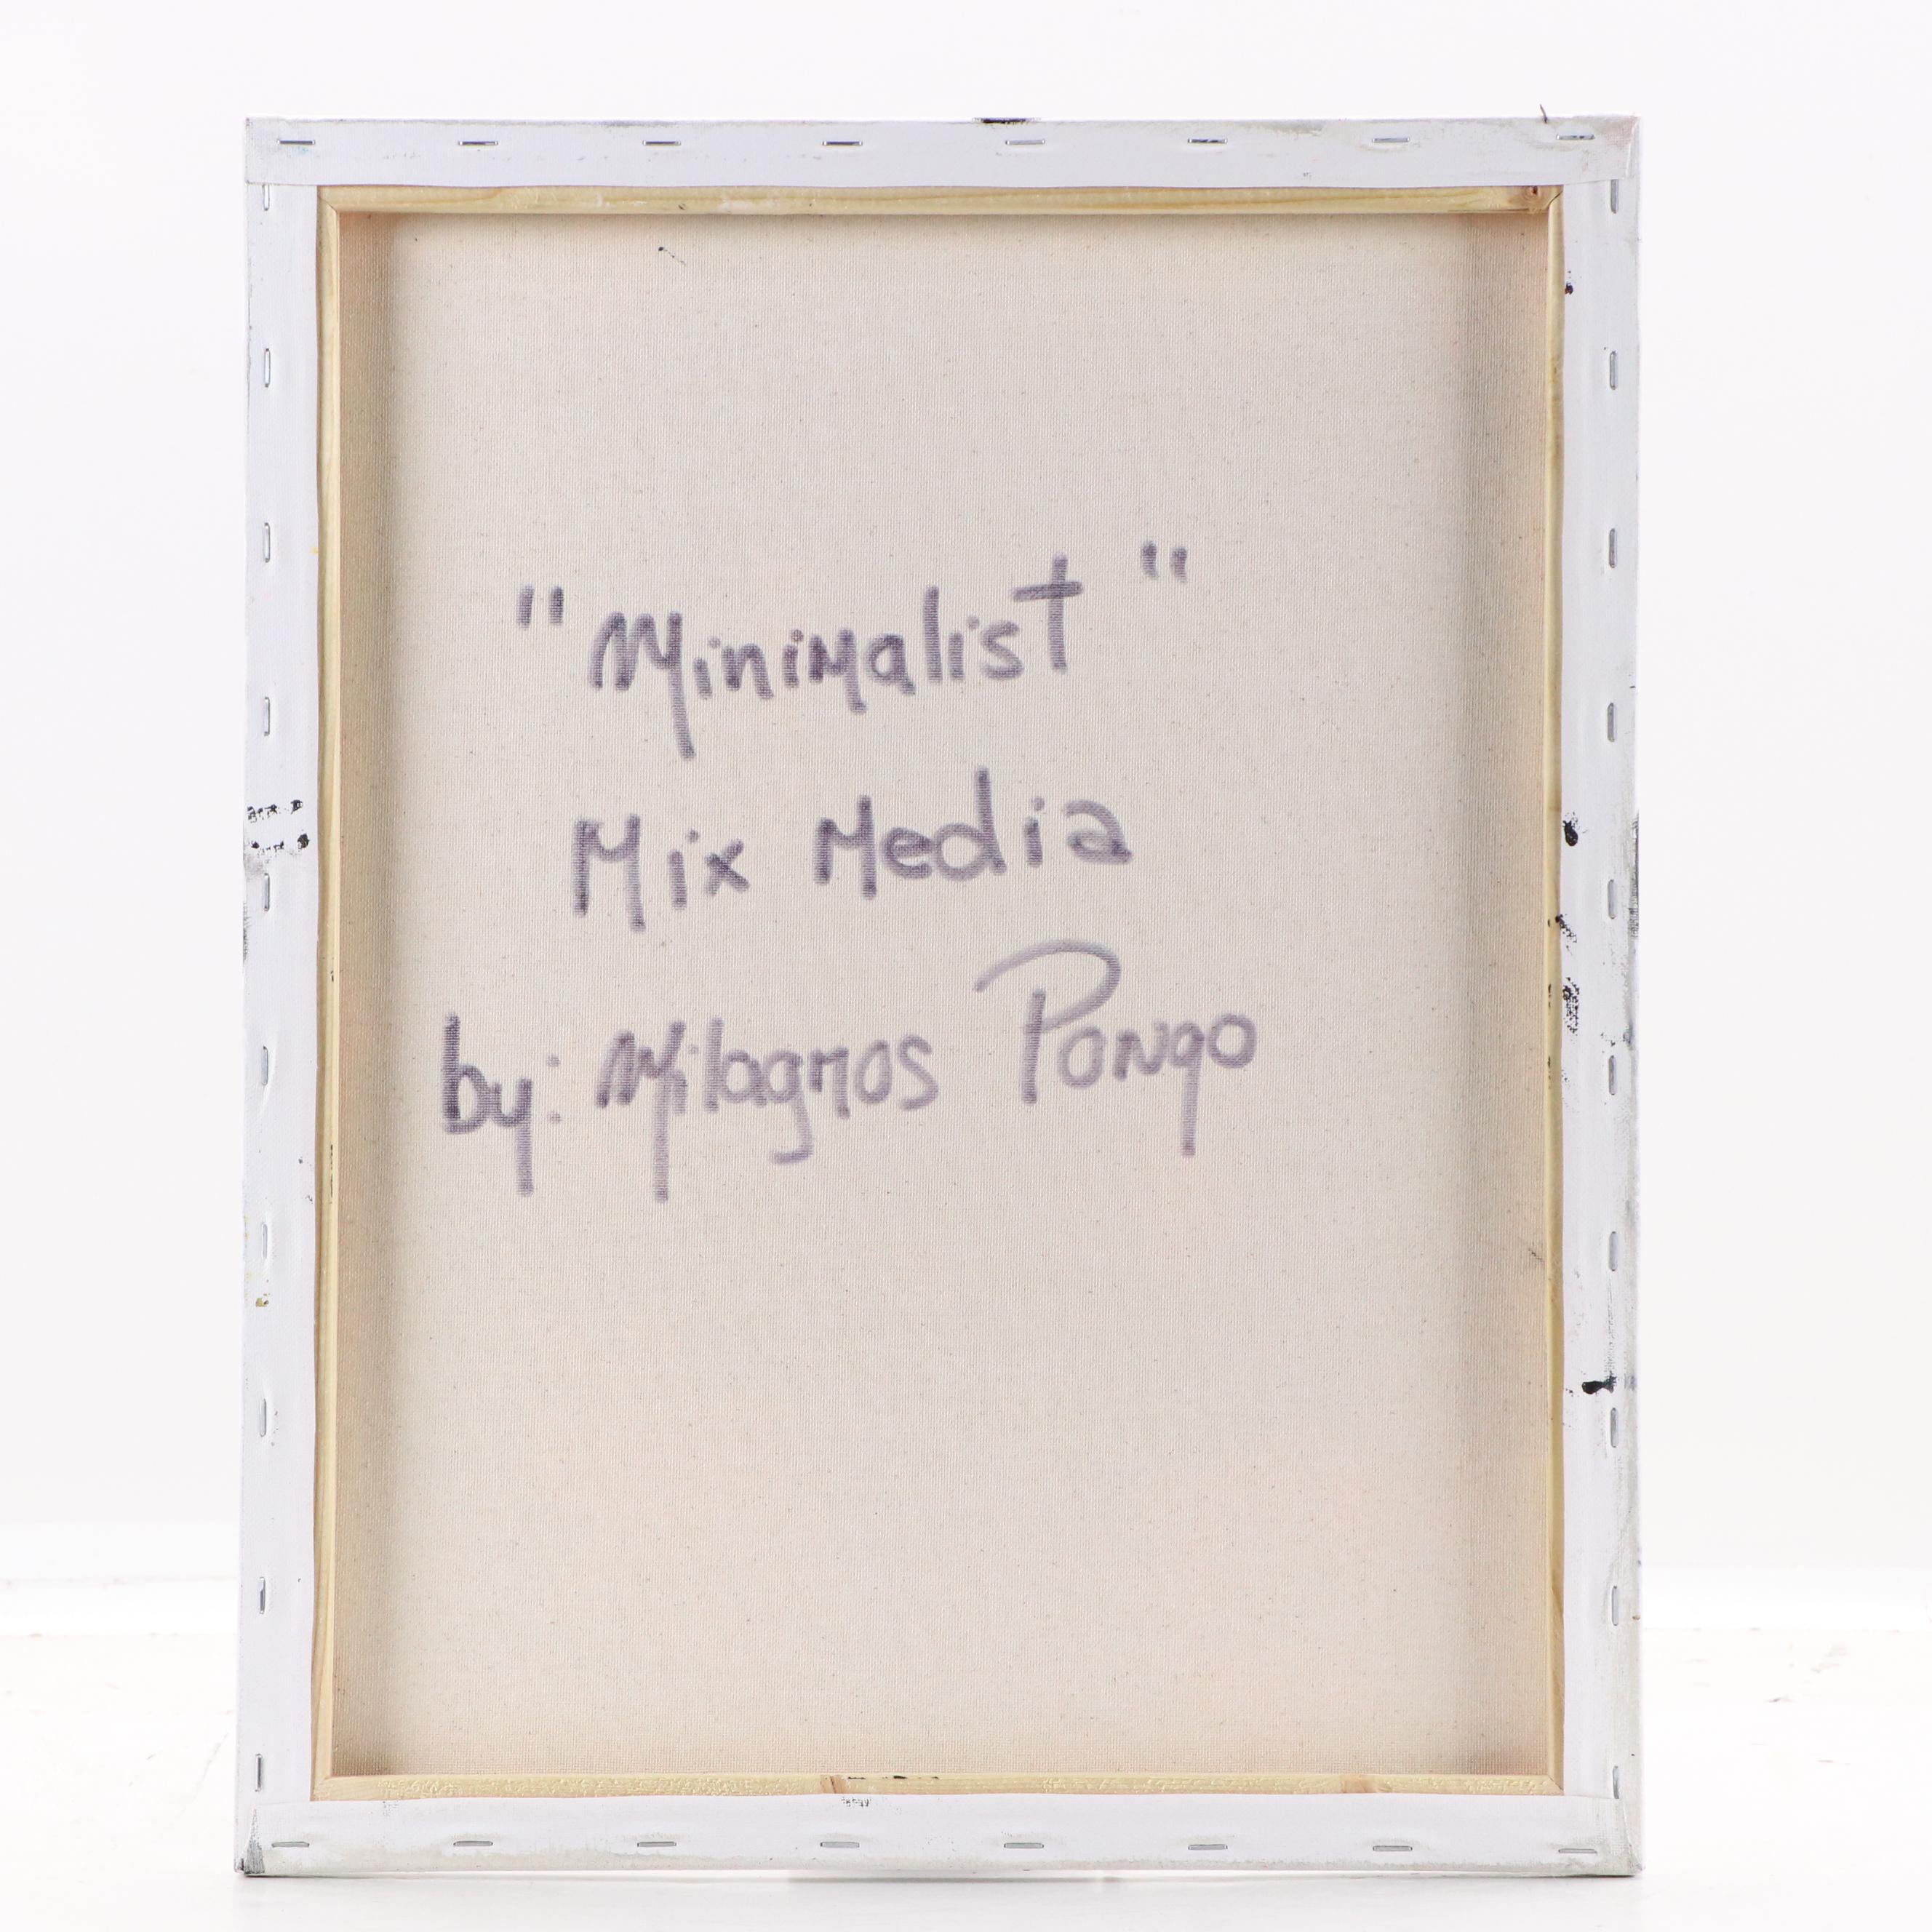 "Minimalist"
Mix Media
by: Milagros Pongo